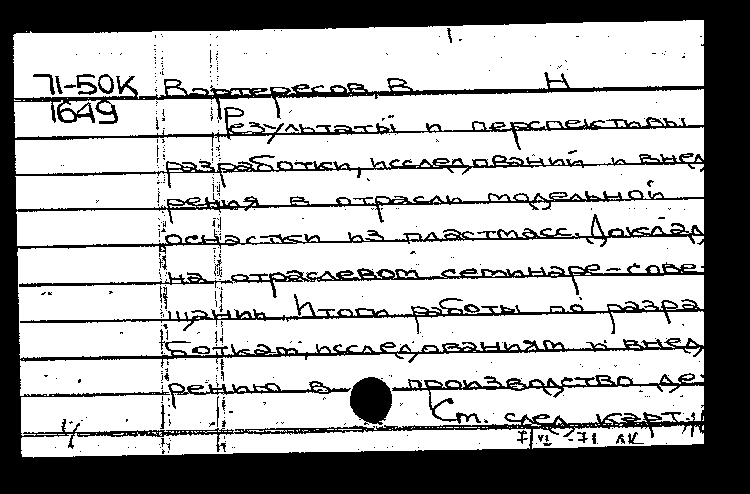 1.
71-50К Вартересов, В Н
1649 Результаты и перспективы
разработки, исследований и внед
рения в отрасли модельной
оснастки из пластмасс. Доклад
на отраслевом семинаре-сове-
щании „Итоги работы по разра
боткам, исследованиям и внед
рению в производство де-
См. след. карт.
7/VI -71 ЛК